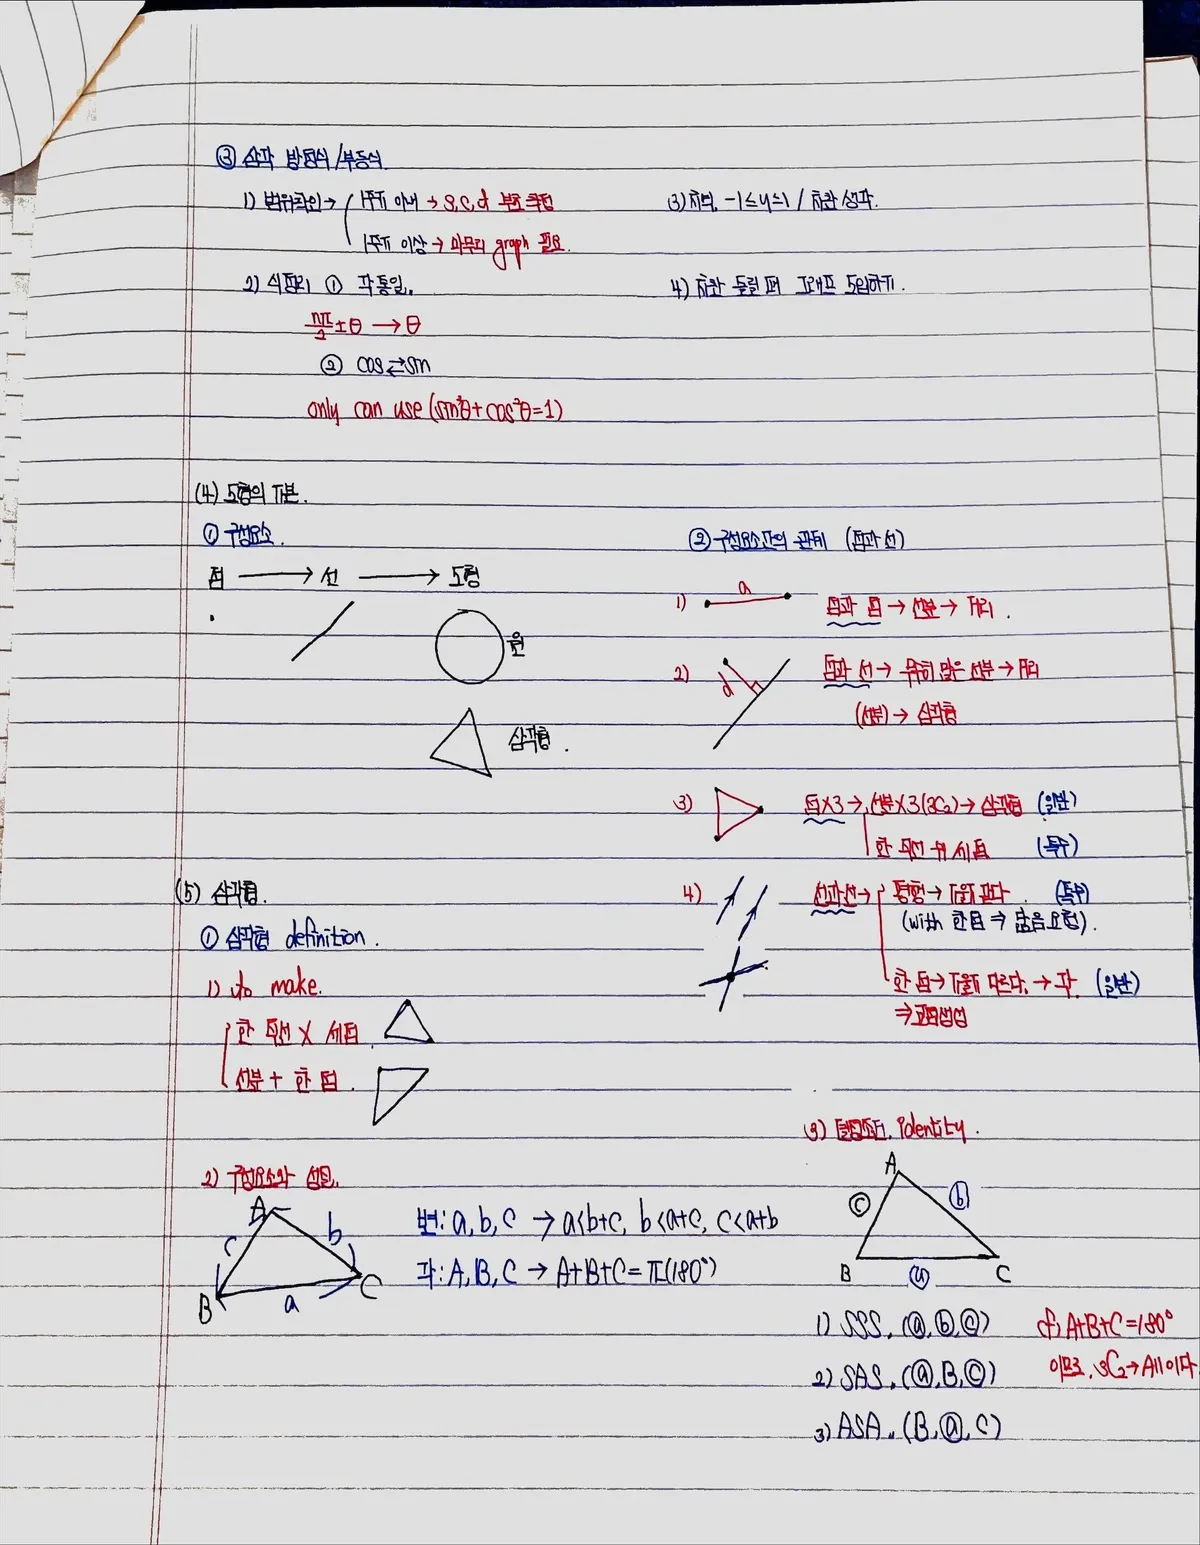 ③ 삼각 방정식/부등식
1) 범위확인 → 1주기 이내 → S, C, d 부호 측정
1주기 이상 → 마무리 graph 필요.
2) 식정리 ① 각 통일.
nπ/2 ± θ → θ
② cos ⇄ sin
only can use (sin²θ + cos²θ = 1)
3) 치역, -1≤y≤1 / 치환 생각.
4) 치환 둘릴 때 그래프 도입하기.
(4) 도형의 기본.
① 구성요소.
점 → 선 → 도형
원
삼각형.
② 구성요소간의 관계 (점과 선)
1) a 점과 점 → 선분 → 거리.
2) d 점과 선 → 무수히 많은 선분 → 거리
(선분) → 삼각형
3) 점×3 → 선분×3(3C₂) → 삼각형 (일반)
한 직선 위 세 점 (특수)
4) 선과선 → 평행 → 기울기 같다. (특수)
(with 한점 ⇒ 닮음요형).
한 점 → 기울기 다르다. → 각. (일반)
⇒ 교점생성
(5) 삼각형.
① 삼각형 definition.
1) to make.
한 직선 X 세점.
선분 + 한 점.
2) 구성요소와 성질.
A
c b
B a C
변: a, b, c → a<b+c, b<a+c, c<a+b
각: A, B, C → A+B+C = π(180°)
3) 결정조건. identity.
A
ⓒ ⓑ
B ⓐ C
1) SSS. (ⓐ, ⓑ, ⓒ) cf) A+B+C=180°
2) SAS. (ⓐ, B, ⓒ) 이므로, 3C₂ → All이다.
3) ASA. (B, ⓐ, C)